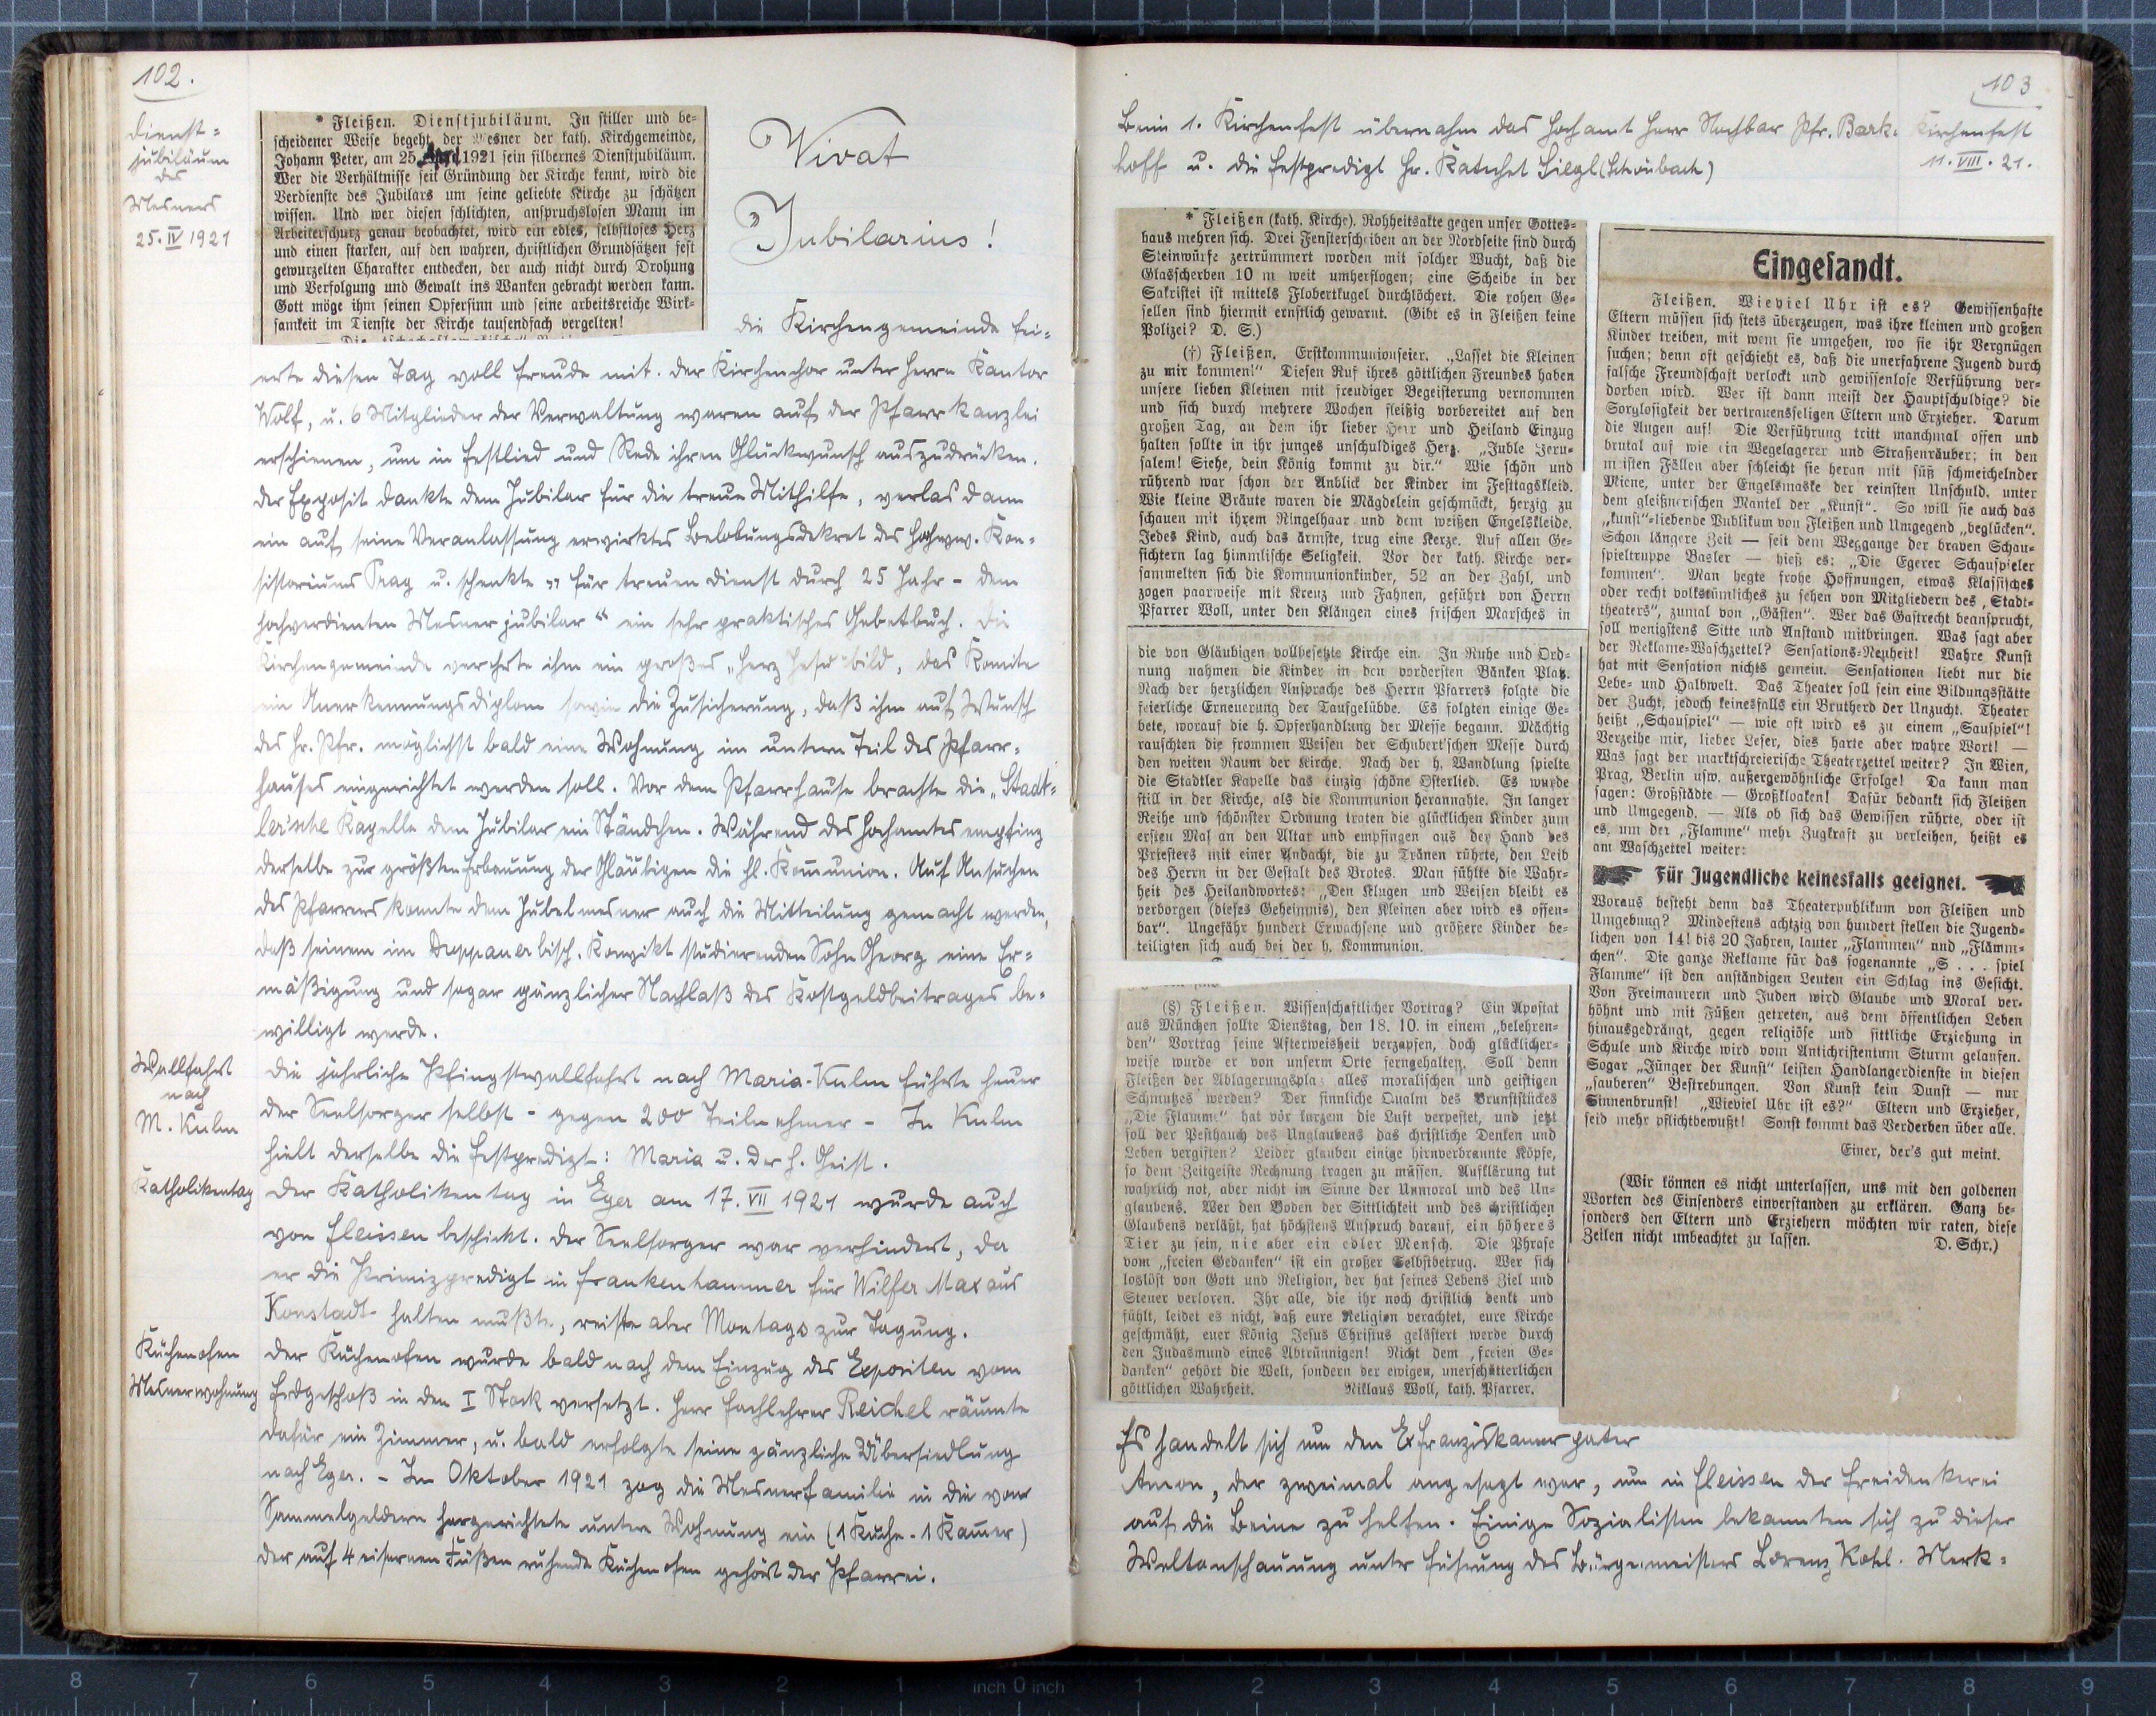 102.
Dienst=
jubiläum
des
Mesners
25. IV 1921
* Fleißen. Dienstjubiläum. In stiller und be-
scheidener Weise begeht der Mesner der kath. Kirchgemeinde,
Johann Peter, am 25. 1921 sein silbernes Dienstjubiläum.
Wer die Verhältnisse seit Gründung der Kirche kennt, wird die
Verdienste des Jubilars um seine geliebte Kirche zu schätzen
wissen. Und wer diesen schlichten, anspruchslosen Mann im
Arbeiterschurz genau beobachtet, wird ein edles, selbstloses Herz
und einen starken, auf den wahren, christlichen Grundsätzen fest
gewurzelten Charakter entdecken, der auch nicht durch Drohung
und Verfolgung und Gewalt ins Wanken gebracht werden kann.
Gott möge ihm seinen Opfersinn und seine arbeitsreiche Wirk-
samkeit im Dienste der Kirche tausendfach vergelten!
Vivat
Jubilarius!
Die Kirchengemeinde fei=
erte diesen Tag voll Freude mit. Der Kirchenchor unter Herrn Kantor
Wolf, u. 6 Mitglieder der Verwaltung waren auf der Pfarrkanzlei
erschienen, um in Festlied und Rede ihren Glückwunsch auszudrücken.
Der Exposit dankte dem Jubilar für die treue Mithilfe, verlas dann
ein auf seine Veranlassung erwirktes Belobungsdekret des hochww. Kon=
sistoriums Prag u. schenkte "für treuen Dienst durch 25 Jahr - dem
hochverdienten Mesnerjubilar" ein sehr praktisches Gebetbuch. Die
Kirchengemeinde verehrte ihm ein großes "Herz Jesu"bild, das Komite
ein Anerkennungsdiplom sowie die Zusicherung, daß ihm auf Wunsch
des Hr. Pfr. möglichst bald eine Wohnung im untern Teil des Pfarr=
hauses eingerichtet werden soll. Vor dem Pfarrhause brachte die "Stadt=
ler'sche Kapelle dem Jubilar ein Ständchen. Während des Hochamtes empfing
derselbe zur größten Erbauung der Gläubigen die hl. Kom̄union. Auf Ansuchen
des Pfarrers konnte dem Jubelmesner auch die Mitteilung gemacht werden,
daß seinem im Duppauer bisch. Konvikt studierenden Sohn Georg eine Er=
mäßigung und sogar gänzlicher Nachlaß des Kostgeldbeitrages be=
willigt werde.
Wallfahrt
nach
M. Kulm
Die jährliche Pfingstwallfahrt nach Maria-Kulm führte heuer
der Seelsorger selbst - gegen 200 Teilnehmer - In Kulm
hielt derselbe die Festpredigt: Maria u. der h. Geist.
Katholikentag
Der Katholikentag in Eger am 17. VII 1921 wurde auch
von Fleissen beschickt. Der Seelsorger war verhindert, da
er die Primizpredigt in Frankenhammer für Wilfer Max aus
Konstadt halten mußte, reiste aber Montags zur Tagung.
Küchenofen
Mesnerwohnung
Der Küchenofen wurde bald nach dem Einzug des Expositen vom
Erdgeschoß in den I Stock versetzt. Herr Fachlehrer Reichel räumte
dafür ein Zimmer, u. bald erfolgte seine gänzliche Übersiedlung
nach Eger. - Im Oktober 1921 zog die Mesnerfamilie in die von
Sammelgeldern hergerichtete untere Wohnung ein (1 Küche - 1 Kam̄er)
Der auf 4 eisernen Füßen ruhende Küchenofen gehört der Pfarrei.
103
Beim 1. Kirchenfest übernahm das Hochamt Herr Nachbar Pfr. Bark=
hoff u. die Festpredigt Hr. Katechet Siegl (Schönbach)
Kirchenfest
11. VIII. 21.
* Fleißen (kath. Kirche). Rohheitsakte gegen unser Gottes-
haus mehren sich. Drei Fensterscheiben an der Nordseite sind durch
Steinwürfe zertrümmert worden mit solcher Wucht, daß die
Glasscherben 10 m weit umherflogen; eine Scheibe in der
Sakristei ist mittels Flobertkugel durchlöchert. Die rohen Ge-
sellen sind hiermit ernstlich gewarnt. (Gibt es in Fleißen keine
Polizei? D. S.)
(†) Fleißen. Erstkommunionfeier. „Lasset die Kleinen
zu mir kommen!" Diesen Ruf ihres göttlichen Freundes haben
unsere lieben Kleinen mit freudiger Begeisterung vernommen
und sich durch mehrere Wochen fleißig vorbereitet auf den
großen Tag, an dem ihr lieber Herr und Heiland Einzug
halten sollte in ihr junges unschuldiges Herz. „Juble Jeru-
salem! Siehe, dein König kommt zu dir." Wie schön und
rührend war schon der Anblick der Kinder im Festtagskleid.
Wie kleine Bräute waren die Mägdelein geschmückt, herzig zu
schauen mit ihrem Ringelhaar und dem weißen Engelskleide.
Jedes Kind, auch das ärmste, trug eine Kerze. Auf allen Ge-
sichtern lag himmlische Seligkeit. Vor der kath. Kirche ver-
sammelten sich die Kommunionkinder, 52 an der Zahl, und
zogen paarweise mit Kreuz und Fahnen, geführt von Herrn
Pfarrer Woll, unter den Klängen eines frischen Marsches in
die von Gläubigen vollbesetzte Kirche ein. In Ruhe und Ord-
nung nahmen die Kinder in den vordersten Bänken Platz.
Nach der herzlichen Ansprache des Herrn Pfarrers folgte die
feierliche Erneuerung der Taufgelübde. Es folgten einige Ge-
bete, worauf die h. Opferhandlung der Messe begann. Mächtig
rauschten die frommen Weisen der Schubert'schen Messe durch
den weiten Raum der Kirche. Nach der h. Wandlung spielte
die Stadtler Kapelle das einzig schöne Osterlied. Es wurde
still in der Kirche, als die Kommunion herannahte. In langer
Reihe und schönster Ordnung traten die glücklichen Kinder zum
ersten Mal an den Altar und empfingen aus der Hand des
Priesters mit einer Andacht, die zu Tränen rührte, den Leib
des Herrn in der Gestalt des Brotes. Man fühlte die Wahr-
heit des Heilandwortes: „Den Klugen und Weisen bleibt es
verborgen (dieses Geheimnis), den Kleinen aber wird es offen-
bar". Ungefähr hundert Erwachsene und größere Kinder be-
teiligten sich auch bei der h. Kommunion.
(§) Fleißen. Wissenschaftlicher Vortrag? Ein Apostat
aus München sollte Dienstag, den 18. 10. in einem „belehren-
den" Vortrag seine Afterweisheit verzapfen, doch glücklicher-
weise wurde er von unserm Orte ferngehalten. Soll denn
Fleißen der Ablagerungsplatz alles moralischen und geistigen
Schmutzes werden? Der sinnliche Qualm des Brunststückes
„Die Flamme" hat vor kurzem die Luft verpestet, und jetzt
soll der Pesthauch des Unglaubens das christliche Denken und
Leben vergiften? Leider glauben einige hirnverbrannte Köpfe,
so dem Zeitgeiste Rechnung tragen zu müssen. Aufklärung tut
wahrlich not, aber nicht im Sinne der Unmoral und des Un-
glaubens. Wer den Boden der Sittlichkeit und des christlichen
Glaubens verläßt, hat höchstens Anspruch darauf, ein höheres
Tier zu sein, nie aber ein edler Mensch. Die Phrase
vom „freien Gedanken" ist ein großer Selbstbetrug. Wer sich
loslöst von Gott und Religion, der hat seines Lebens Ziel und
Steuer verloren. Ihr alle, die ihr noch christlich denkt und
fühlt, leidet es nicht, daß eure Religion verachtet, eure Kirche
geschmäht, euer König Jesus Christus gelästert werde durch
den Judasmund eines Abtrünnigen! Nicht dem „freien Ge-
danken" gehört die Welt, sondern der ewigen, unerschütterlichen
göttlichen Wahrheit. Niklaus Woll, kath. Pfarrer.
Eingesandt.
Fleißen. Wieviel Uhr ist es? Gewissenhafte
Eltern müssen sich stets überzeugen, was ihre kleinen und großen
Kinder treiben, mit wem sie umgehen, wo sie ihr Vergnügen
suchen; denn oft geschieht es, daß die unerfahrene Jugend durch
falsche Freundschaft verlockt und gewissenlose Verführung ver-
dorben wird. Wer ist dann meist der Hauptschuldige? die
Sorglosigkeit der vertrauensseligen Eltern und Erzieher. Darum
die Augen auf! Die Verführung tritt manchmal offen und
brutal auf wie ein Wegelagerer und Straßenräuber; in den
meisten Fällen aber schleicht sie heran mit süß schmeichelnder
Miene, unter der Engelsmaske der reinsten Unschuld, unter
dem gleißnerischen Mantel der „Kunst". So will sie auch das
„kunst"-liebende Publikum von Fleißen und Umgegend „beglücken".
Schon längere Zeit — seit dem Weggange der braven Schau-
spieltruppe Basler — hieß es: „Die Egerer Schauspieler
kommen". Man hegte frohe Hoffnungen, etwas Klassisches
oder recht volkstümliches zu sehen von Mitgliedern des „Stadt-
theaters", zumal von „Gästen". Wer das Gastrecht beansprucht,
soll wenigstens Sitte und Anstand mitbringen. Was sagt aber
der Reklame-Waschzettel? Sensations-Neuheit! Wahre Kunst
hat mit Sensation nichts gemein. Sensationen liebt nur die
Lebe- und Halbwelt. Das Theater soll sein eine Bildungsstätte
der Zucht, jedoch keinesfalls ein Brutherd der Unzucht. Theater
heißt „Schauspiel" — wie oft wird es zu einem „Sauspiel"!
Verzeihe mir, lieber Leser, dies harte aber wahre Wort! —
Was sagt der marktschreierische Theaterzettel weiter? In Wien,
Prag, Berlin usw. außergewöhnliche Erfolge! Da kann man
sagen: Großstädte — Großkloaken! Dafür bedankt sich Fleißen
und Umgegend. — Als ob sich das Gewissen rührte, oder ist
es, um der „Flamme" mehr Zugkraft zu verleihen, heißt es
am Waschzettel weiter:
Für Jugendliche keinesfalls geeignet.
Woraus besteht denn das Theaterpublikum von Fleißen und
Umgebung? Mindestens achtzig von hundert stellen die Jugend-
lichen von 14! bis 20 Jahren, lauter „Flammen" und „Flämm-
chen". Die ganze Reklame für das sogenannte „S . . . spiel
Flamme" ist den anständigen Leuten ein Schlag ins Gesicht.
Von Freimaurern und Juden wird Glaube und Moral ver-
höhnt und mit Füßen getreten, aus dem öffentlichen Leben
hinausgedrängt, gegen religiöse und sittliche Erziehung in
Schule und Kirche wird vom Antichristentum Sturm gelaufen.
Sogar „Jünger der Kunst" leisten Handlangerdienste in diesen
„sauberen" Bestrebungen. Von Kunst kein Dunst — nur
Sinnenbrunst! „Wieviel Uhr ist es?" Eltern und Erzieher,
seid mehr pflichtbewußt! Sonst kommt das Verderben über alle.
Einer, der's gut meint.
(Wir können es nicht unterlassen, uns mit den goldenen
Worten des Einsenders einverstanden zu erklären. Ganz be-
sonders den Eltern und Erziehern möchten wir raten, diese
Zeilen nicht unbeachtet zu lassen. D. Schr.)
Es handelt sich um den Exfranziskanerpater
Amon, der zweimal angesagt war, um in Fleissen der Freidenkerei
auf die Beine zu helfen. Einige Sozialisten bekannten sich zu dieser
Weltanschauung unter Führung des Bürgermeisters Lorenz Kohl. Merk=
8 7 6 5 4 3 2 1 inch 0 inch 1 2 3 4 5 6 7 8 9